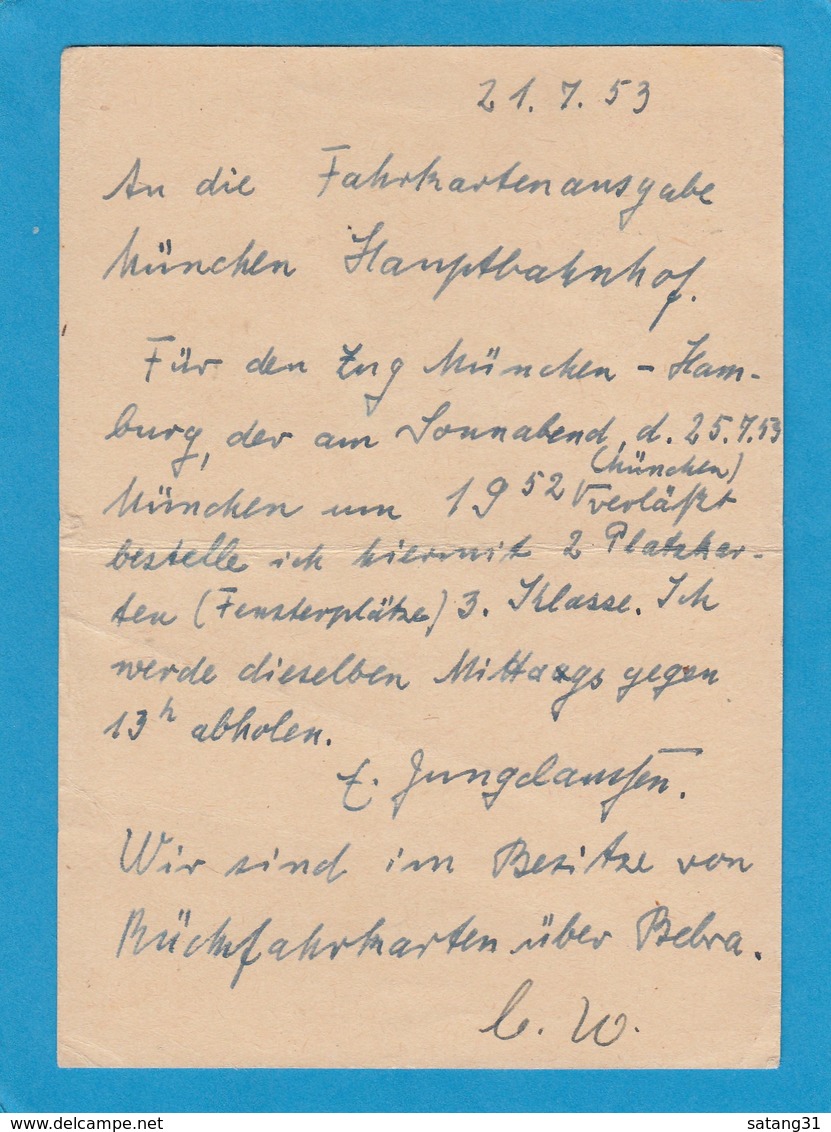 21.7.53
An die Fahrkartenausgabe
München Hauptbahnhof.
Für den Zug München - Ham-
burg, der am Sonnabend, d. 25.7.53
(München)
München um 19 52 verläßt
bestelle ich hiermit 2 Platzkar-
ten (Fensterplätze) 3. Klasse. Ich
werde dieselben Mittags gegen
13h abholen.
E. Jungclaussen.
Wir sind im Besitze von
Rückfahrkarten über Bebra.
satang31